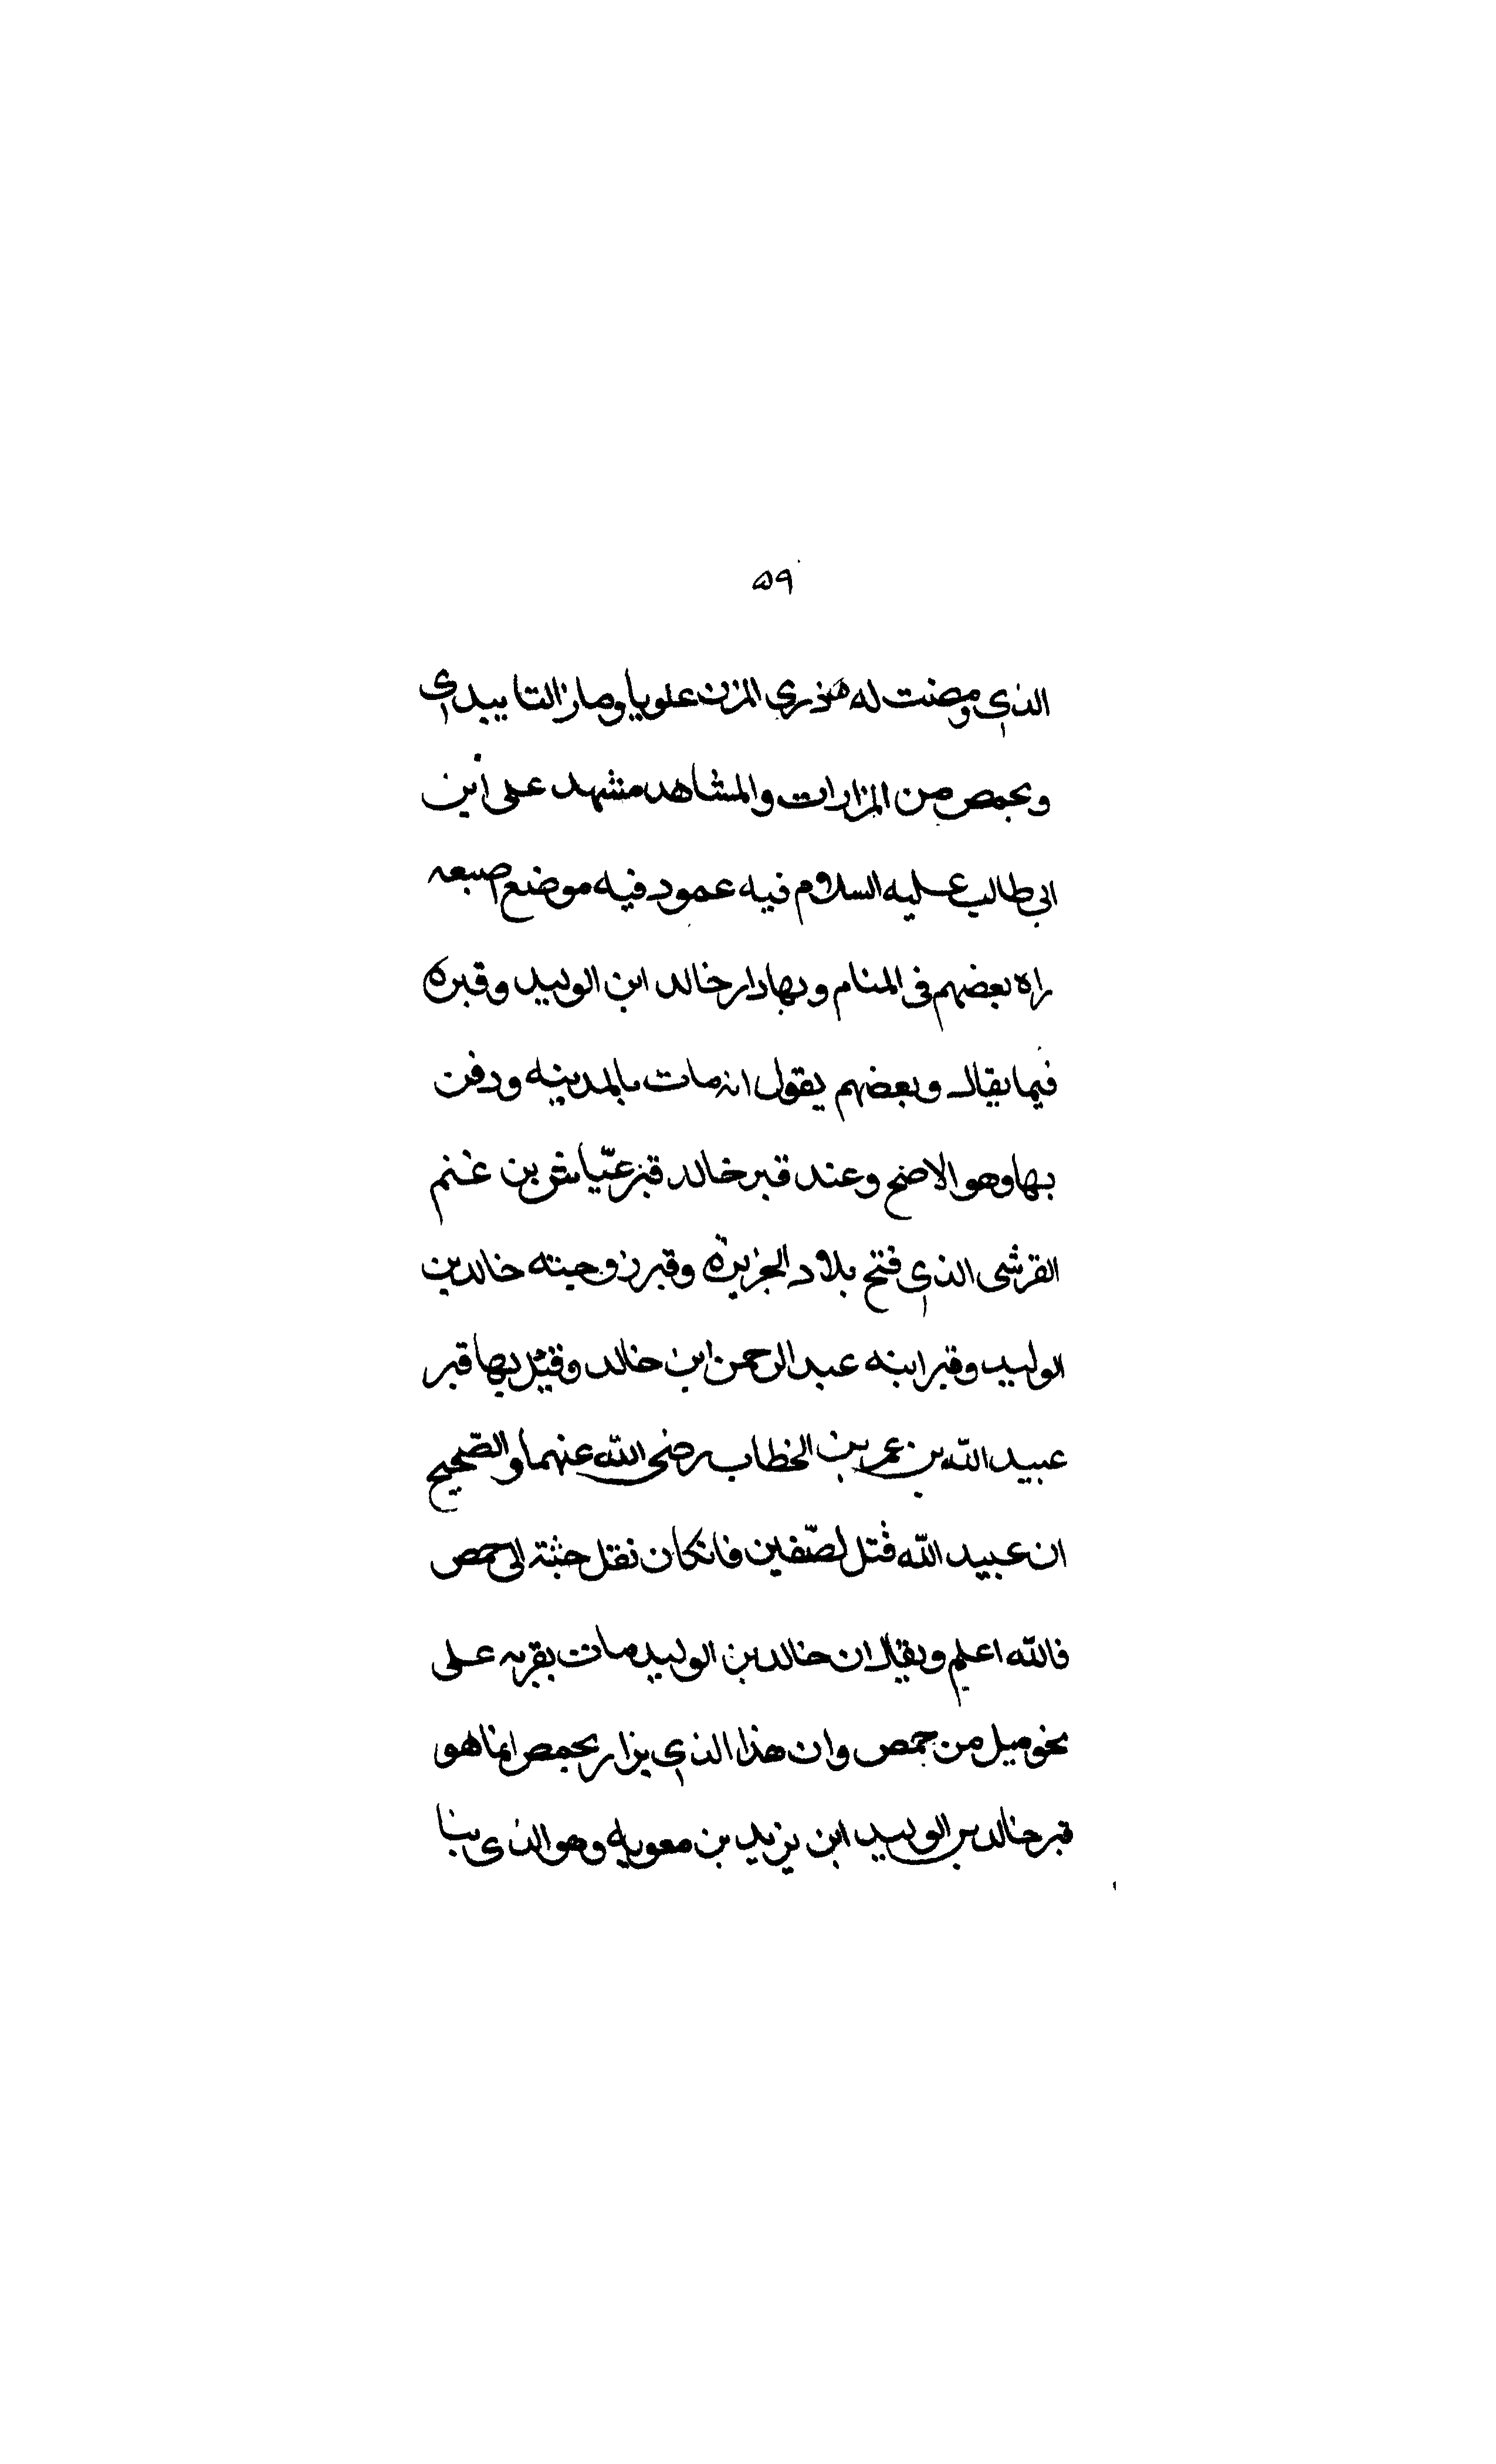 ٥٩
الذي ومضت له ذري المزن علويا وما زالتا
وبحمص من المزارات والمشاهد مشهد على ابن
ابي طالب عليه السلام فيه عمود فيه موضع اصبعه
راه بعضهم في المنام وبها دار خالد ابن الوليد وقبره
فيما يقال وبعضهم يقول انه مات بالمدينه ودفن
بها وهو الاضح وعند قبر خالد قبر عيّاش بن غنم
القرشى الذي فتح بلاد الجزيرة وقبر زوجته خالد بن
الوليد وقبر ابنه عبد الرحمن ابن خالد وقيل بها قبر
عبيد الله بن عمر بن الخطاب رضى الله عنهما والصّحيح
ان عبيد الله قتل لصّفين فانكان نقل جثته الى حمص
فالله اعلم ويقال ان خالد بن الوليد مات بقريه على
نحو ميل من حمص وان هذا الذي يزار بحمص انما هو
قبر خالد بن الوليد ابن يزيد بن معويه وهو الذى بنا